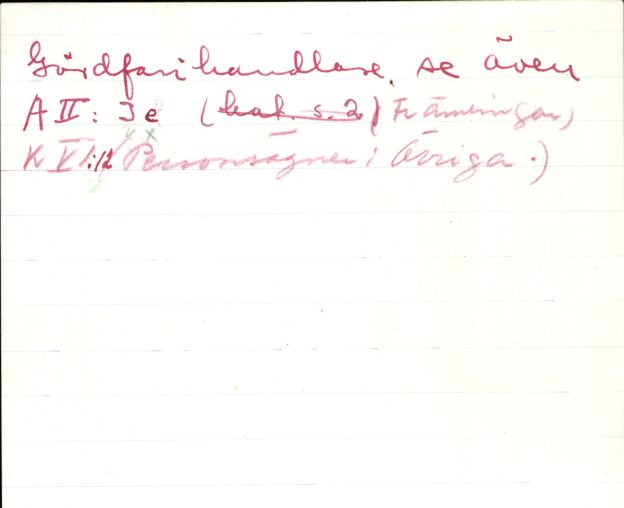 Gårdfarihandlare, se även
A II: Je (kat. s. 2) Främlingar)
K VI:12 Personsägner; Övriga.)